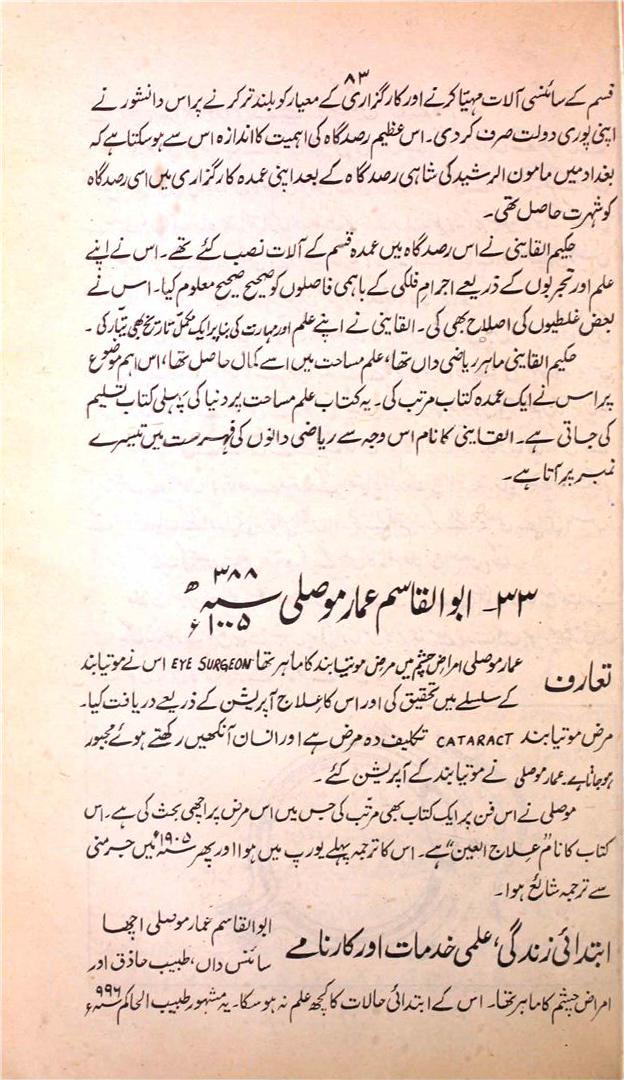 ۸۳
قسم کے سائنسی آلات مہیّا کرنے اور کارگزاری کے معیار کو بلند تر کرنے پر اس دانشور نے
اپنی پوری دولت صرف کر دی۔ اس عظیم رصدگاہ کی اہمیت کا اندازہ اس سے ہو سکتا ہے کہ
بغداد میں مامون الرشید کی شاہی رصدگاہ کے بعد اپنی عمدہ کارگزاری میں اسی رصدگاہ
کو شہرت حاصل تھی۔
حکیم القاینی نے اس رصدگاہ میں عمدہ قسم کے آلات نصب کئے تھے۔ اس نے اپنے
علم اور تجربوں کے ذریعے اجرامِ فلکی کے باہمی فاصلوں کو صحیح صحیح معلوم کیا۔ اس نے
بعض غلطیوں کی اصلاح بھی کی۔ القاینی نے اپنے علم اور مہارت کی بنا پر ایک مکمل تاریخ بھی تیار کی۔
حکیم القاینی ماہر ریاضی داں تھا، علم مساحت میں اسے کمال حاصل تھا، اس اہم موضوع
پر اس نے ایک عمدہ کتاب مرتب کی۔ یہ کتاب علم مساحت پر دنیا کی پہلی کتاب تسلیم
کی جاتی ہے۔ القاینی کا نام اس وجہ سے ریاضی دانوں کی فہرست میں تیسرے
نمبر پر آتا ہے۔
۳۳۔ ابوالقاسم عمار موصلی ۳۸۸ھ ۱۰۰۵ء
تعارف عمار موصلی امراضِ چشم میں مرض موتیا بند کا ماہر تھا EYE SURGEON اس نے موتیا بند
کے سلسلے میں تحقیق کی اور اس کا علاج آپریشن کے ذریعے دریافت کیا۔
مرض موتیا بند CATARACT تکلیف دہ مرض ہے اور انسان آنکھیں رکھتے ہوئے مجبور
ہو جاتا ہے۔ عمار موصلی نے موتیا بند کے آپریشن کئے۔
موصلی نے اس فن پر ایک کتاب بھی مرتب کی جس میں اس مرض پر اچھی بحث کی ہے۔ اس
کتاب کا نام "علاج العین" ہے۔ اس کا ترجمہ پہلے یورپ میں ہوا اور پھر ۱۹۰۵ء میں جرمنی
سے ترجمہ شائع ہوا۔
ابتدائی زندگی، علمی خدمات اور کارنامے ابوالقاسم عمار موصلی اچھا
سائنس داں، طبیب حاذق اور
امراض چشم کا ماہر تھا۔ اس کے ابتدائی حالات کا کچھ علم نہ ہو سکا۔ یہ مشہور طبیب الحاکم ۹۹۶ء